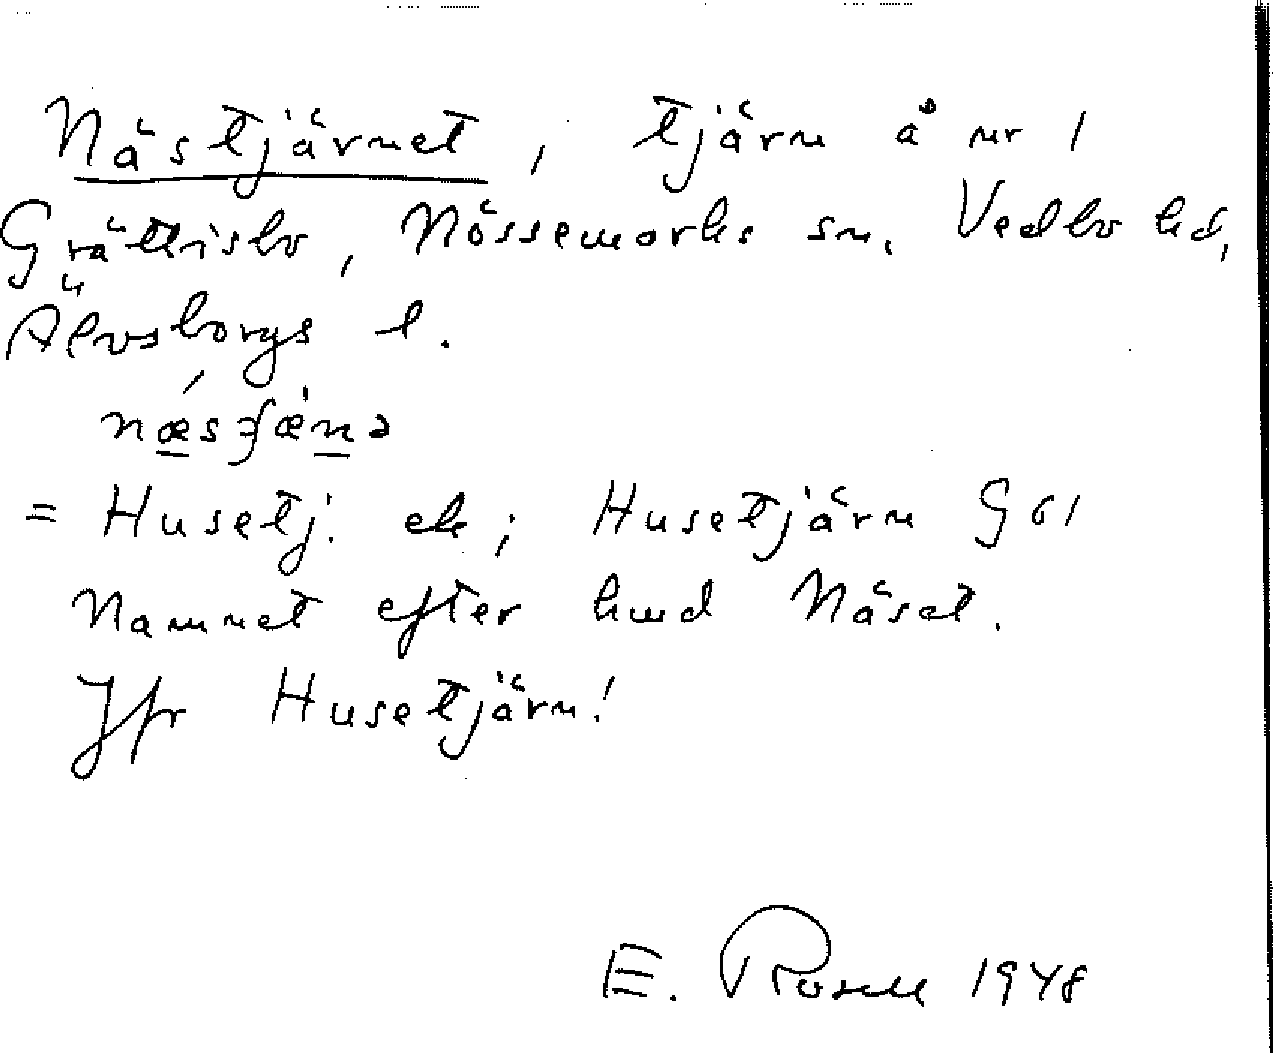 Nästjärnet, tjärn å nr 1
Grättisbo, Nössemarks sn, Vedbo hd,
Älvsborgs l.
= Husetj. ek; Husetjärn G 61
Namnet efter hmd Näset.
Jfr Husetjärn!
E. Rosell 1948